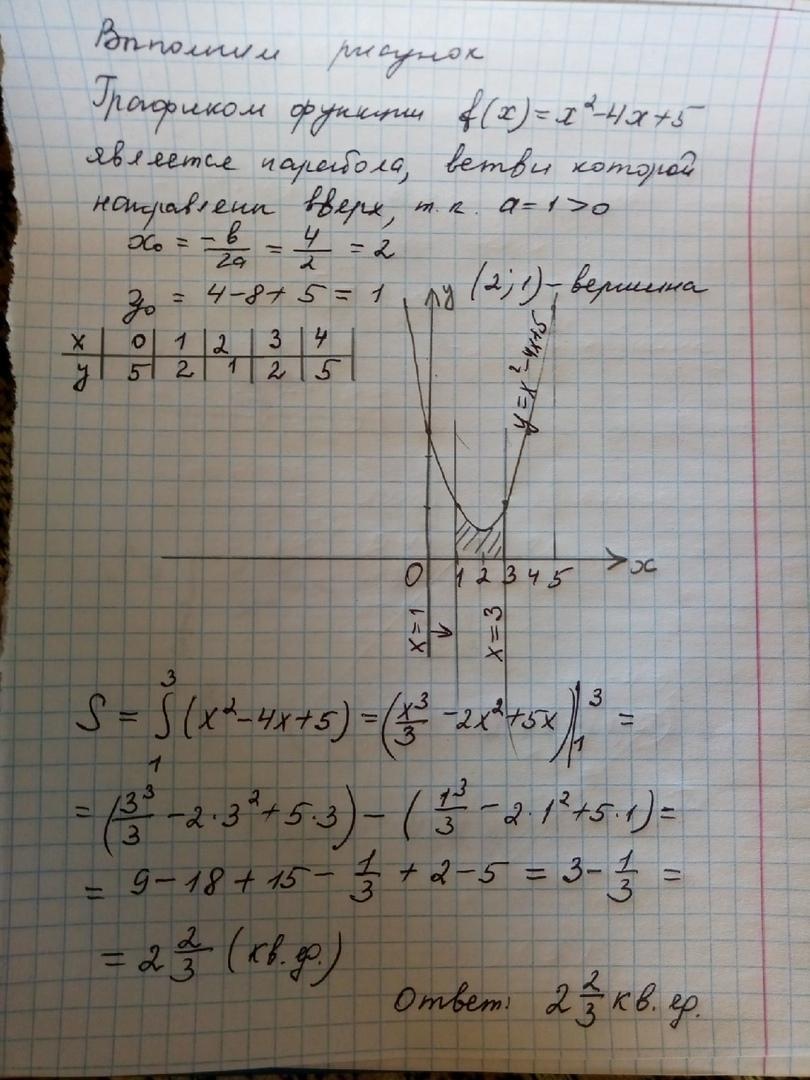 Выполним рисунок
Графиком функции f(x)=x²-4x+5
является парабола, ветви которой
направлены вверх, т.к. a=1>0
x₀ = -b/2a = 4/2 = 2
y₀ = 4-8+5 = 1
(2;1)-вершина
x 0 1 2 3 4
y 5 2 1 2 5
y
y=x²-4x+5
0 1 2 3 4 5 x
x=1
x=3
S = ∫₁³ (x²-4x+5) = (x³/3 -2x²+5x)|₁³ =
= (3³/3 -2·3²+5·3) - (1³/3 -2·1²+5·1) =
= 9-18+15-1/3+2-5 = 3-1/3 =
= 2 2/3 (кв.ед.)
Ответ: 2 2/3 кв.ед.